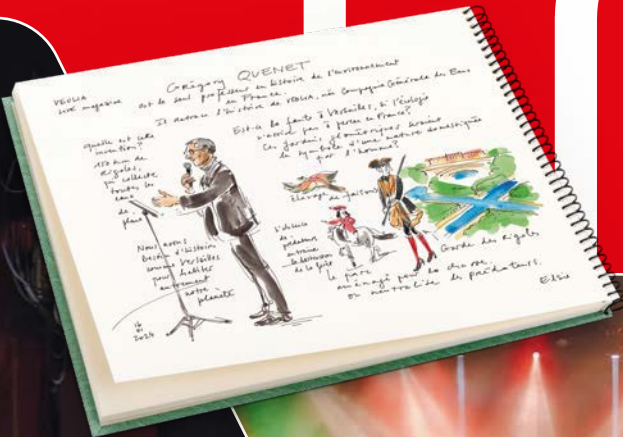 Grégory QUENET
VEOLIA
LIVE magazine
est le seul professeur en histoire de l'environnement
en France.
Il retrace l'histoire de VEOLIA, née Compagnie Générale des Eaux
Est-ce la faute à Versailles, si l'écologie
n'arrive pas à percer en France?
Ces jardins géométriques seraient
le symbole d'une nature domestiquée
par l'homme?
quelle est cette
invention?
km de
rigoles,
qui collecte
toutes les
eaux
de
pluie
Nous avons
besoin d'histoires
comme Versailles
pour habiter
autrement
notre
planète
16
01
2024
Elevage de faisans
L'absence
de
prédateurs
entraîne
la destruction
de la forêt
Garde des rigoles
le parc
aménagé pour la chasse.
on neutralise les prédateurs.
Elsie